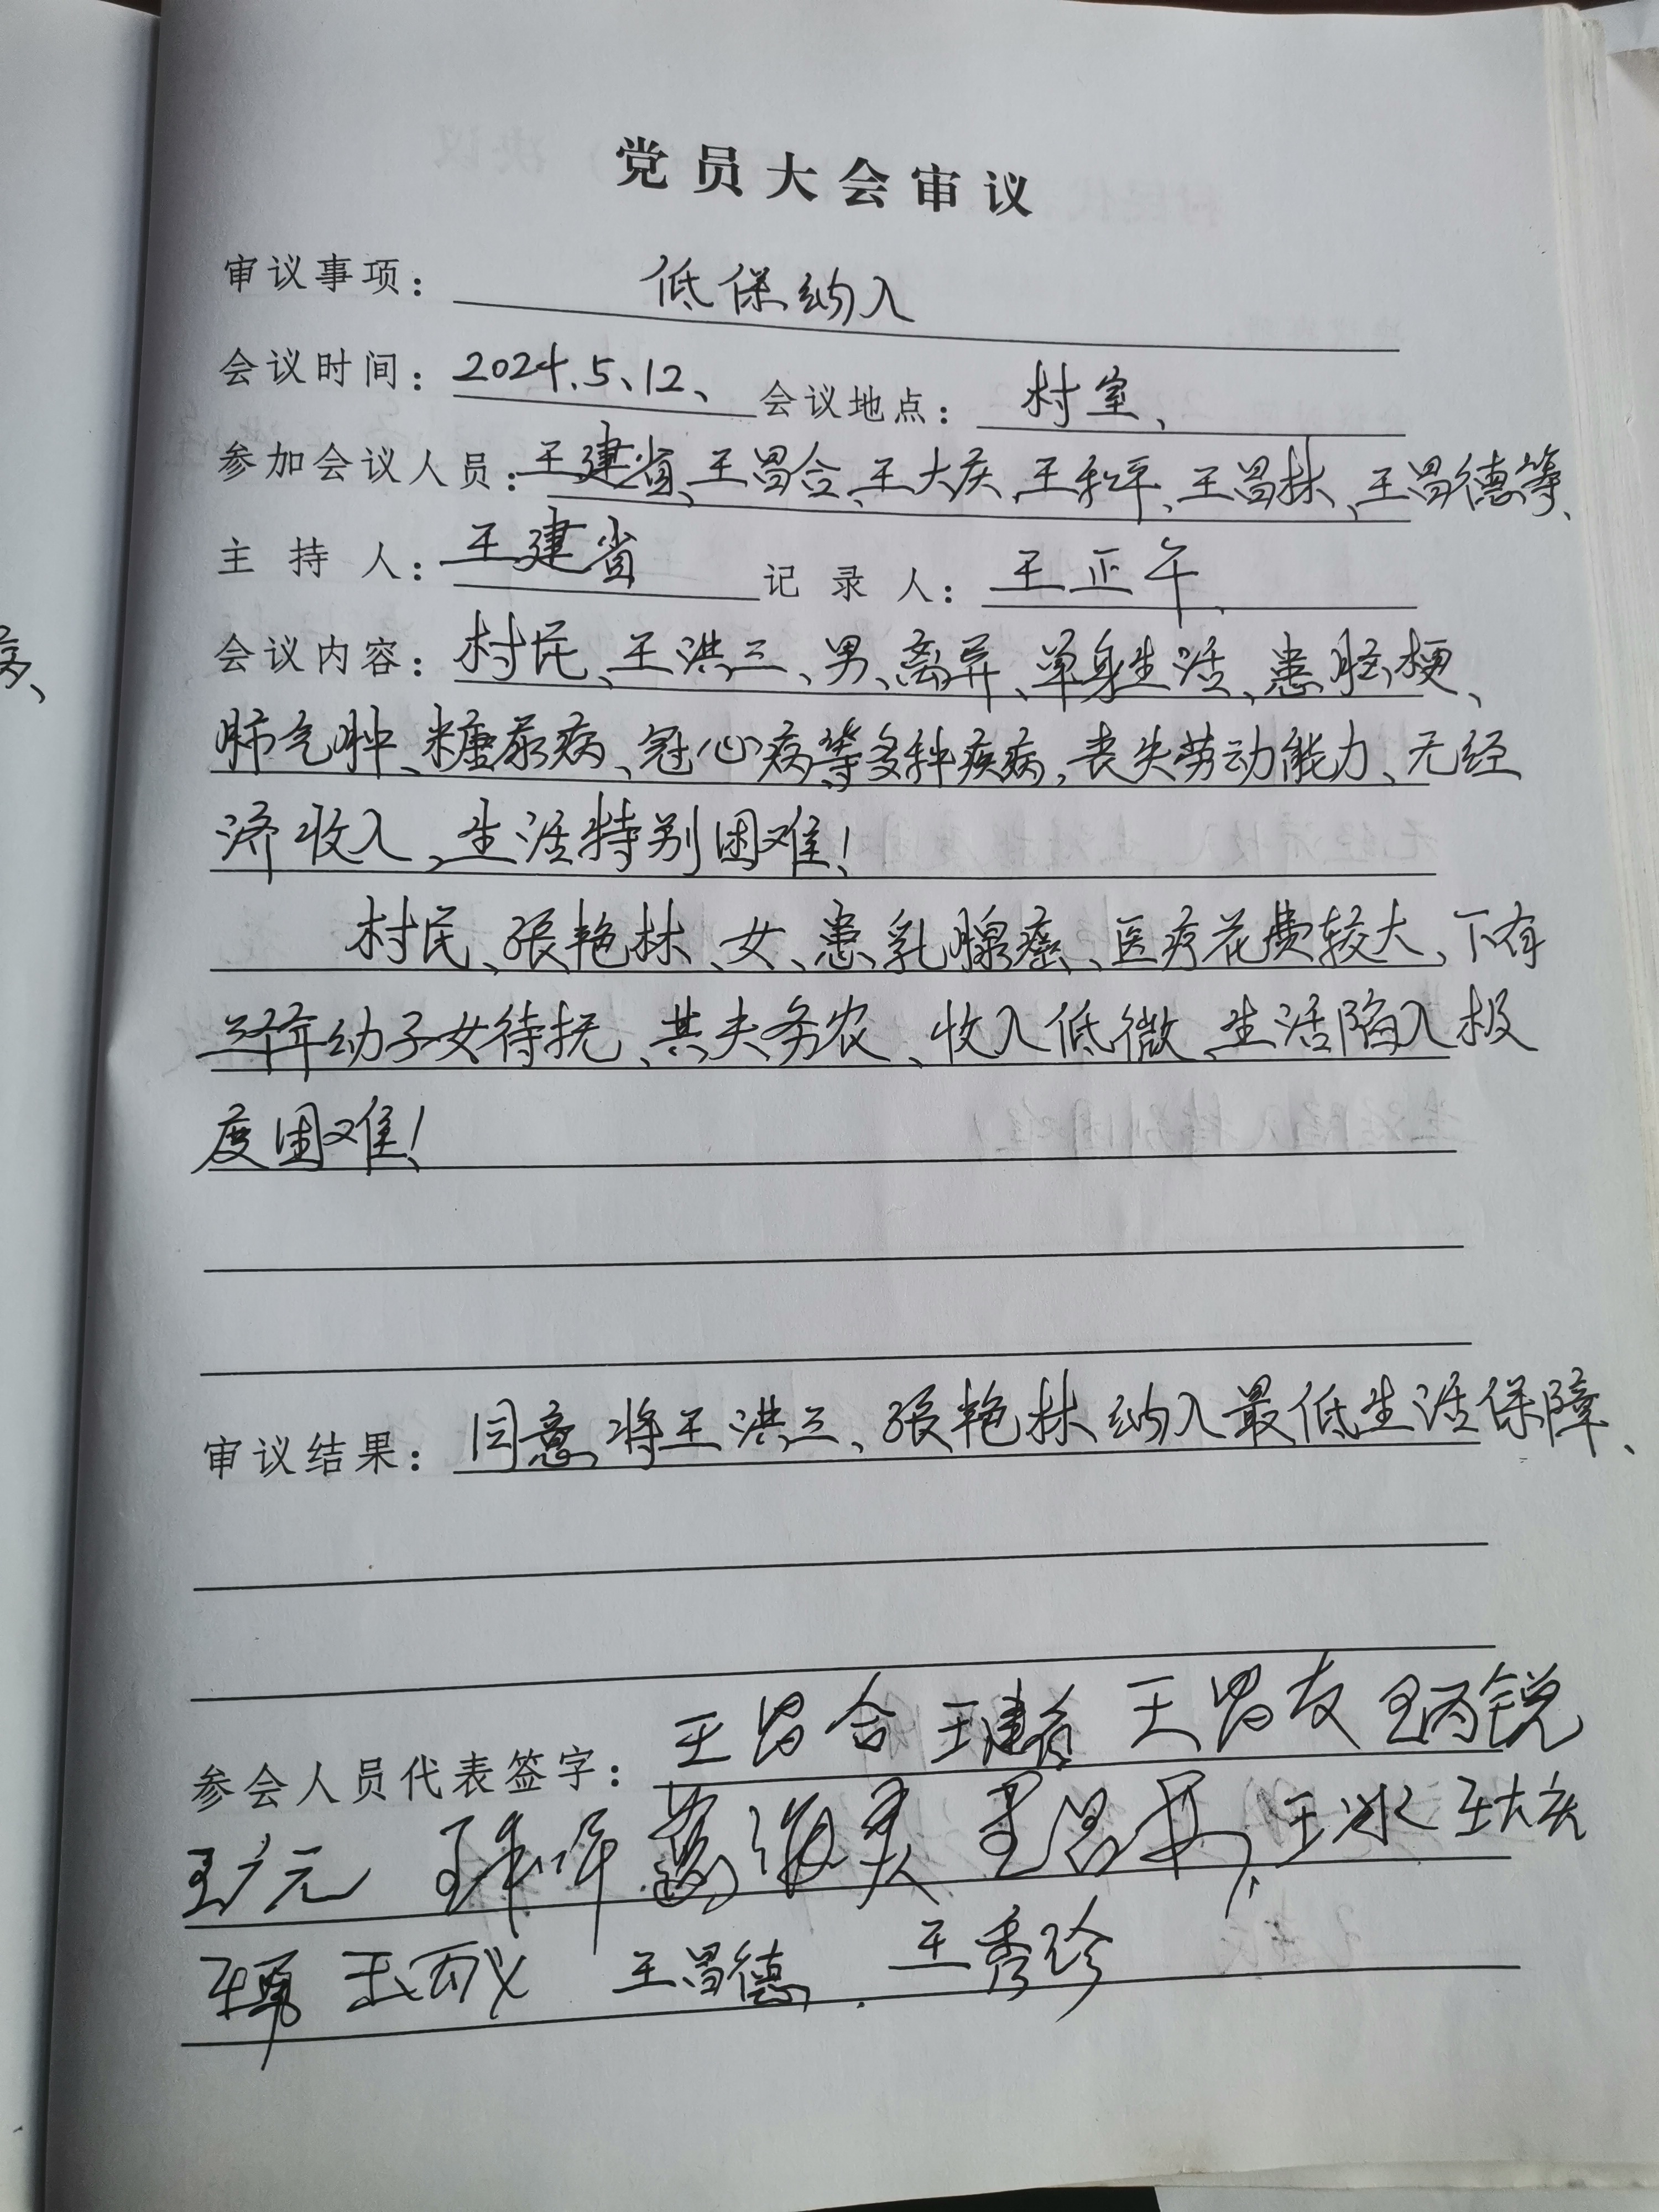 党员大会审议
审议事项： 低保纳入
会议时间：2024.5、12、 会议地点： 村室、
参加会议人员：王建省、王昌合、王大庆、王和平、王昌林、王昌德等、
主持人：王建省 记录人： 王正午、
会议内容：村民、王洪三、男、离异、单身生活、患脑梗、
肺气肿、糖尿病、冠心病等多种疾病，丧失劳动能力、无经
济收入、生活特别困难！
村民、张艳林、女、患乳腺癌、医疗花费较大、下有
年幼子女待抚、其夫务农、收入低微、生活陷入极
度困难！
审议结果：同意将王洪三、张艳林纳入最低生活保障、
参会人员代表签字：王昌合 王建省 王昌友 王丙锐
王广元 王冰 王大庆
王丙义 王昌德 王秀珍
病、